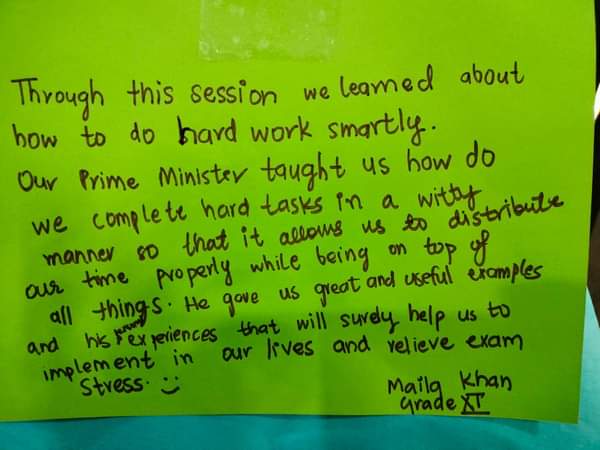 Through this session we learned about
how to do hard work smartly.
Our Prime Minister taught us how do
we complete hard tasks in a witty
manner so that it allows us to distribute
our time properly while being on top of
all things. He gave us great and useful examples
and his experiences that will surely help us to
implement in our lives and relieve exam
stress. :)
Maila Khan
Grade XI